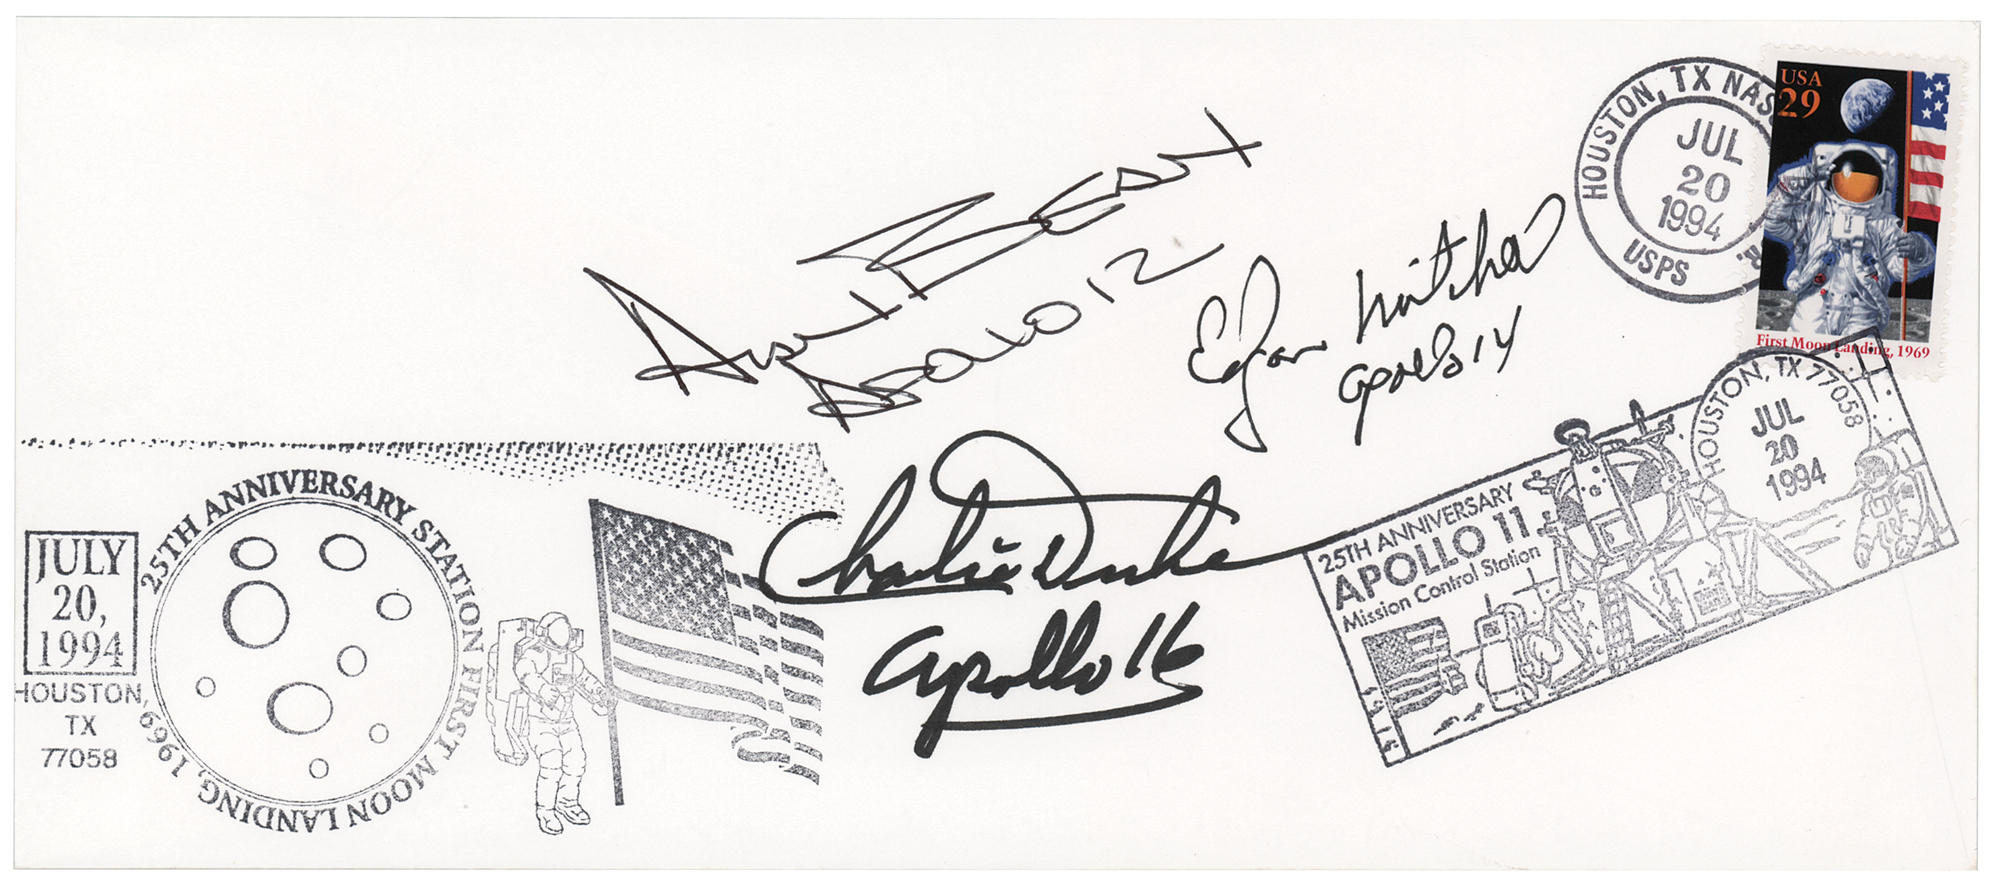 HOUSTON, TX NAS
JUL
20
1994
USPS
R.
USA
29
First Moon Landing, 1969
Apollo 12
Edgar Mitchell
Apollo 14
Charlie Duke
Apollo 16
HOUSTON, TX 77058
JUL
20
1994
25TH ANNIVERSARY
APOLLO 11
Mission Control Station
JULY
20,
1994
HOUSTON,
TX
77058
25TH ANNIVERSARY STATION FIRST MOON LANDING, 1969